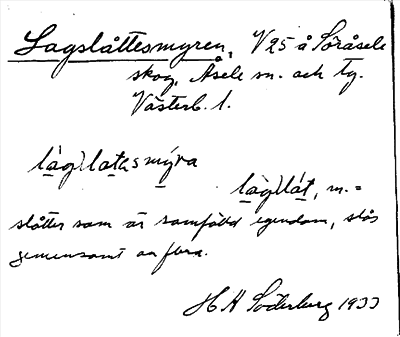 Lagslåttesmyren, V25 å Söråsele
skog, Åsele sn. och tg.
Västerb. l.
làg)latasmýra
làg)lát, m. =
slåtter som är samfälld egendom, slås
gemensamt av flera.
H H Söderberg 1933